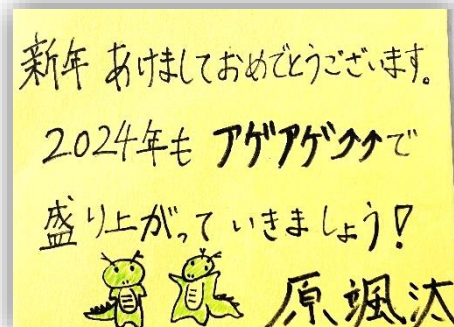 新年 あけましておめでとうございます。
2024年も アゲアゲ↗↗で
盛り上がって いきましょう!
原颯汰